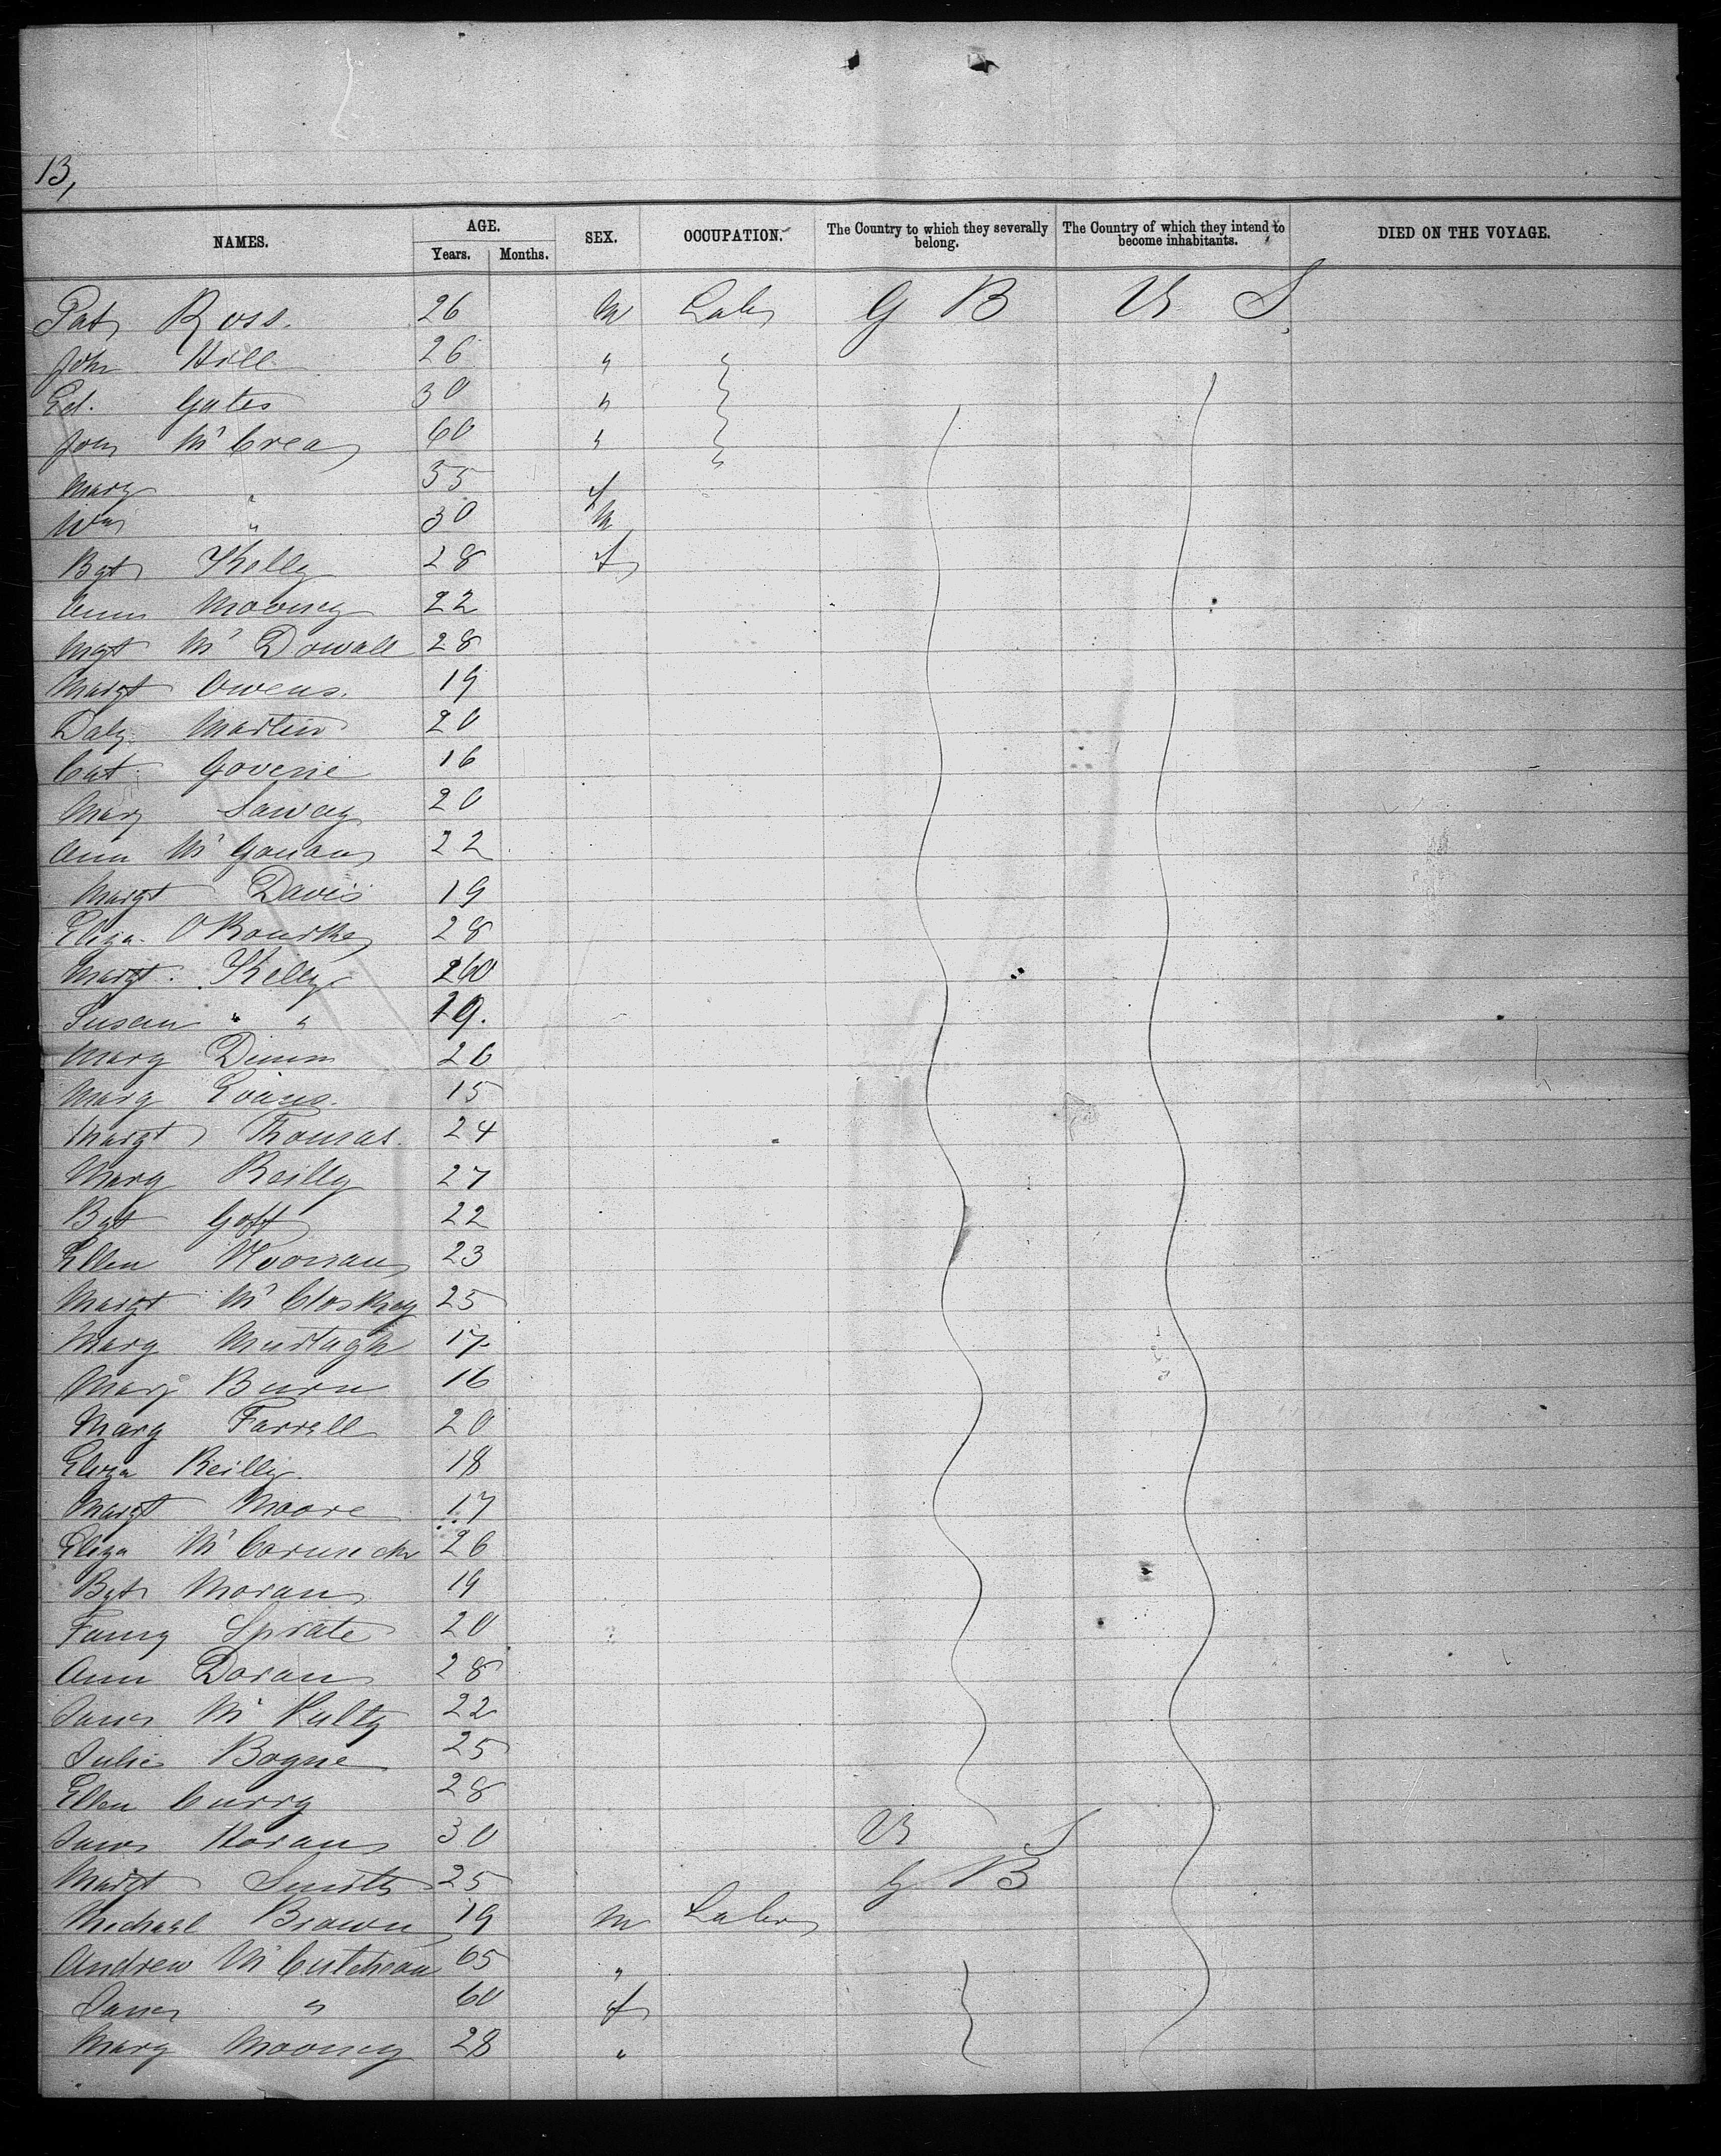 13,
NAMES. AGE. Years. Months. SEX. OCCUPATION. The Country to which they severally belong. The Country of which they intend to become inhabitants. DIED ON THE VOYAGE.
Pat Ross. 26 M Labr G B U S
John Hill 26 "
Ed. Gates 30 "
John McCrea 60 "
Mary " 55 f
Wm " 30 M
Bgt Kelly 28 f
Ann Mooney 22
Mgt Mc Dowall 28
Margt Owens. 19
Daly Martin 20
Cat. Goverie 16
Mary 20
Ann Mc Gowan 22
Margt Davis 19
Eliza. O'Rourke 28
Margt. Kelly 60
Susan " " 19.
Mary Dunn 26
Mary Evans. 15
Margt Thomas. 24
Mary Reilly 27
Bgt Goff 22
Ellen Noonan 23
Margt McCloskey 25
Mary Murtagh 17
Mary Burn 16
Mary Farrell 20
Eliza Reilly 18
Margt Moore 17
Eliza McCormick 26
Bgt Moran 19
Fanny Sprate 20
Ann Doran 28
Jane Mc Nulty 22
Julia Bogue 25
Ellen Curry 28
Jane Horan 30 U S
Margt Smith 25 G B
Michael Brown 19 M Labr
Andrew McCutcheon 65 "
Jane " 60 f
Mary Mooney 28 "